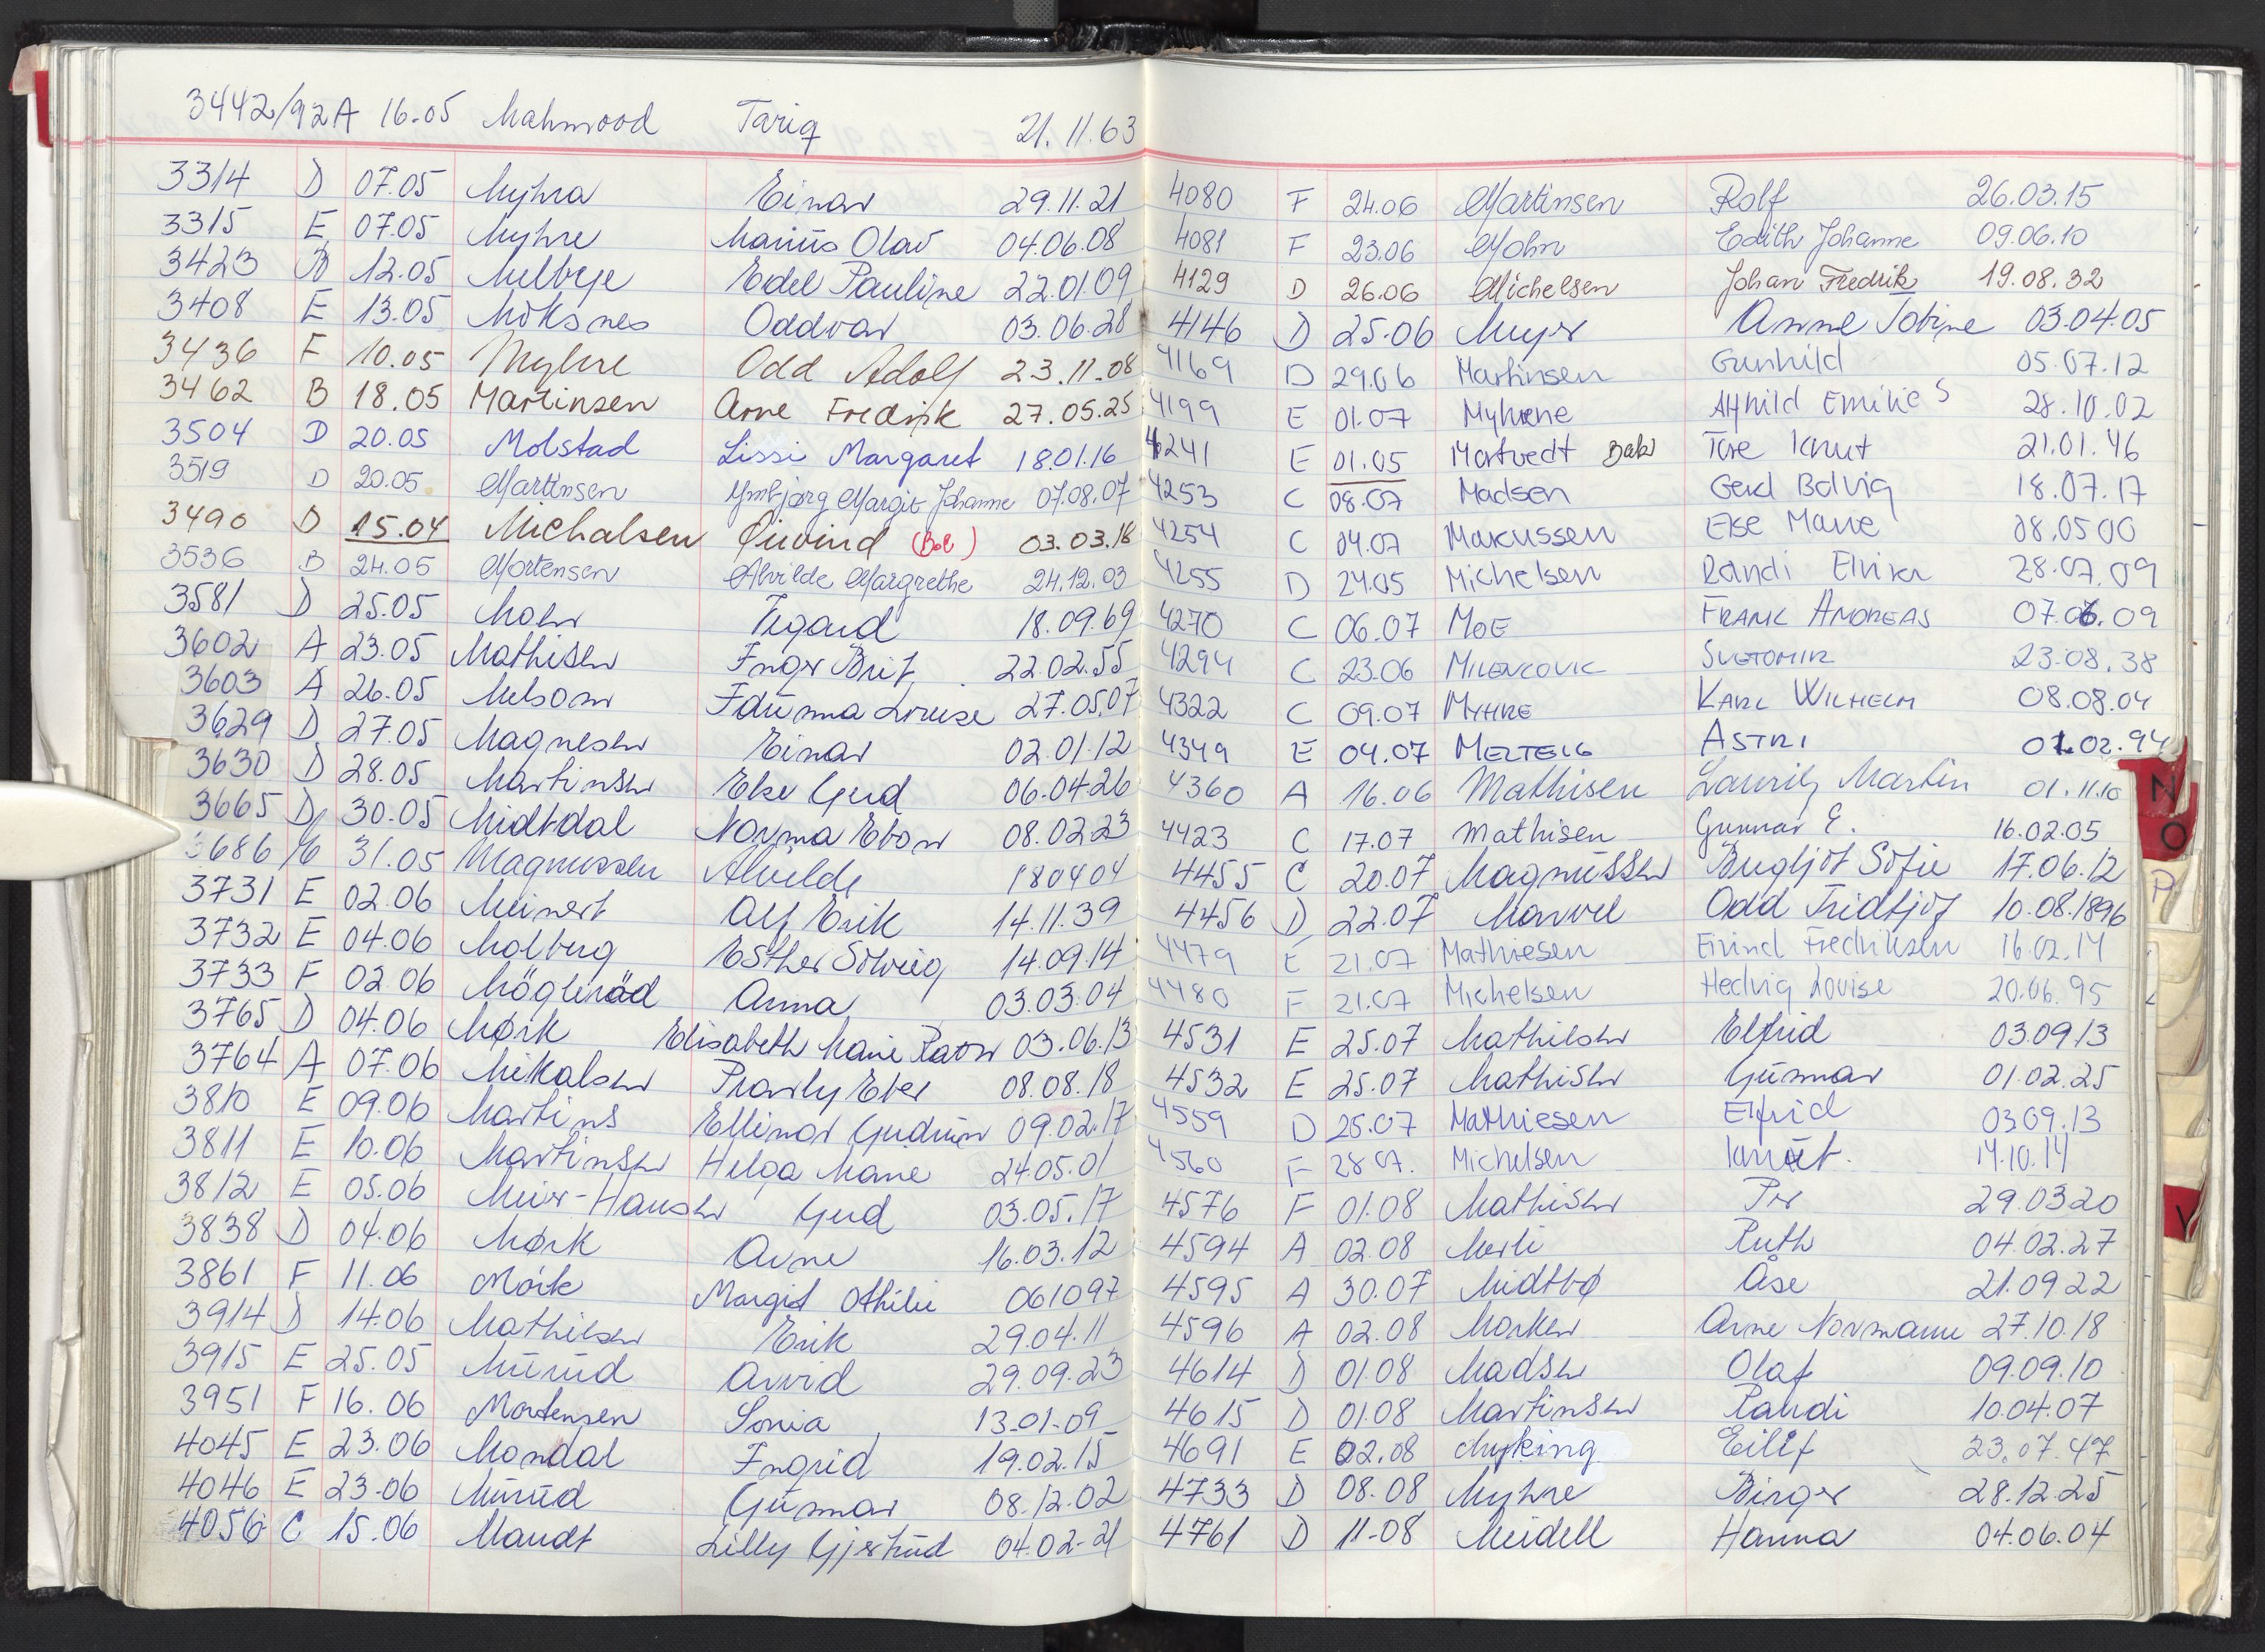 3442/92A 16.05 Mahmood Tariq 21.11.63
3314 D 07.05 Myhra Einar 29.11.21
3315 E 07.05 Myhre Marius Olav 04.06.08
3423 B 12.05 Melbye Edel Pauline 22.01.09
3408 E 13.05 Moksnes Oddvar 03.06.28
3436 F 10.05 Myhre Odd Adolf 23.11.08
3462 B 18.05 Martinsen Arne Fredrik 27.05.25
3504 D 20.05 Molstad Lissi Margaret 18.01.16
3519 D 20.05 Martinsen Ymbjørg Margit Johanne 07.08.07
3490 D 15.04 Michalsen Øivind 03.03.18
3536 B 24.05 Mortensen Alvilde Margrethe 24.12.03
3581 D 25.05 Mohr Vegard 18.09.69
3602 A 23.05 Mathisen Inger Brit 22.02.55
3603 A 26.05 Melsom Louise 27.05.07
3629 D 27.05 Magnesen Einar 02.01.12
3630 D 28.05 Martinsen Else Gerd 06.04.26
3665 D 30.05 Midtdal Norma 08.02.23
3686 31.05 Magnussen Alvilde 180404
3731 E 02.06 Meinert Alf Erik 14.11.39
3732 E 04.06 Molberg Esther Solveig 14.09.14
3733 F 02.06 Møgleröd Anna 03.03.04
3765 D 04.06 Mørk Elisabeth Marie 03.06.13
3764 A 07.06 Mikalsen 08.08.18
3810 E 09.06 Martins Ellinor Gudrun 09.02.17
3811 E 10.06 Martinsen Helga Marie 24.05.01
3812 E 05.06 Meier-Hansen Gerd 03.05.17
3838 D 04.06 Mørk Arne 16.03.12
3861 F 11.06 Mörk Margit Othilie 061097
3914 D 14.06 Mathiesen Erik 29.04.11
3915 E 25.05 Murud Arvid 29.09.23
3951 F 16.06 Mortensen Sonia 13.01.09
4045 E 23.06 Mondal Ingrid 19.02.15
4046 E 23.06 Murud Gunnar 08.12.02
4056 C 15.06 Mandt Lilly Gjertrud 04.02-21
4080 F 24.06 Martinsen Rolf 26.03.15
4081 F 23.06 Mohn Edith Johanne 09.06.10
4129 D 26.06 Michelsen Johan Fredrik 19.08.32
4146 D 25.06 Meyer Anne Tobine 03.04.05
4169 D 29.06 Martinsen Gunhild 05.07.12
4199 E 01.07 Myhrene Emilie S 28.10.02
4241 E 01.05 Mortvedt Tore Knut 21.01.46
4253 C 08.07 Madsen Gerd Bolvig 18.07.17
4254 C 04.07 Markussen Else Marie 08.05 00
4255 D 24.05 Michelsen Randi Elvira 28.07.09
4270 C 06.07 MOE FRANK ANDREAS 07.06.09
4294 C 23.06 MILENKOVIC SVETOMIR 23.08.38
4322 C 09.07 MYHRE KARL WILHELM 08.08.04
4349 E 04.07 MELTEIG ASTRI 01.02.94
4360 A 16.06 Mathisen Lauritz Martin 01.11.10
4423 C 17.07 Mathisen Gunnar E. 16.02.05
4455 C 20.07 Magnussen Bergljot Sofie 17.06.12
4456 D 22.07 Odd Fridtjof 10.08.1896
4479 E 21.07 Mathiesen Eivind Fredriksen 16.02.14
4480 F 21.07 Michelsen Hedvig Lovise 20.06.95
4531 E 25.07 Mathilsen Elfrid 03.09.13
4532 E 25.07 Mathisen Gunnar 01.02.25
4559 D 25.07 Mathiesen Elfrid 03 09.13
4560 F 28.07. Michelsen Knut. 14.10.14
4576 F 01.08 Mathisen Per 29.0320
4594 A 02.08 Merli Ruth 04.02.27
4595 A 30.07 Midtbø Åse 21.09 22
4596 A 02.08 Morken Arne Normann 27.10.18
4614 D 01.08 Madsen Olaf 09.09.10
4615 D 01.08 Martinsen Randi 10.04.07
4691 E 02.08 Myking Eilif 23.07.47
4733 D 08.08 Myhre Birger 28.12.25
4761 D 11-08 Meidell Hanna 04.06.04
N
O
P
V